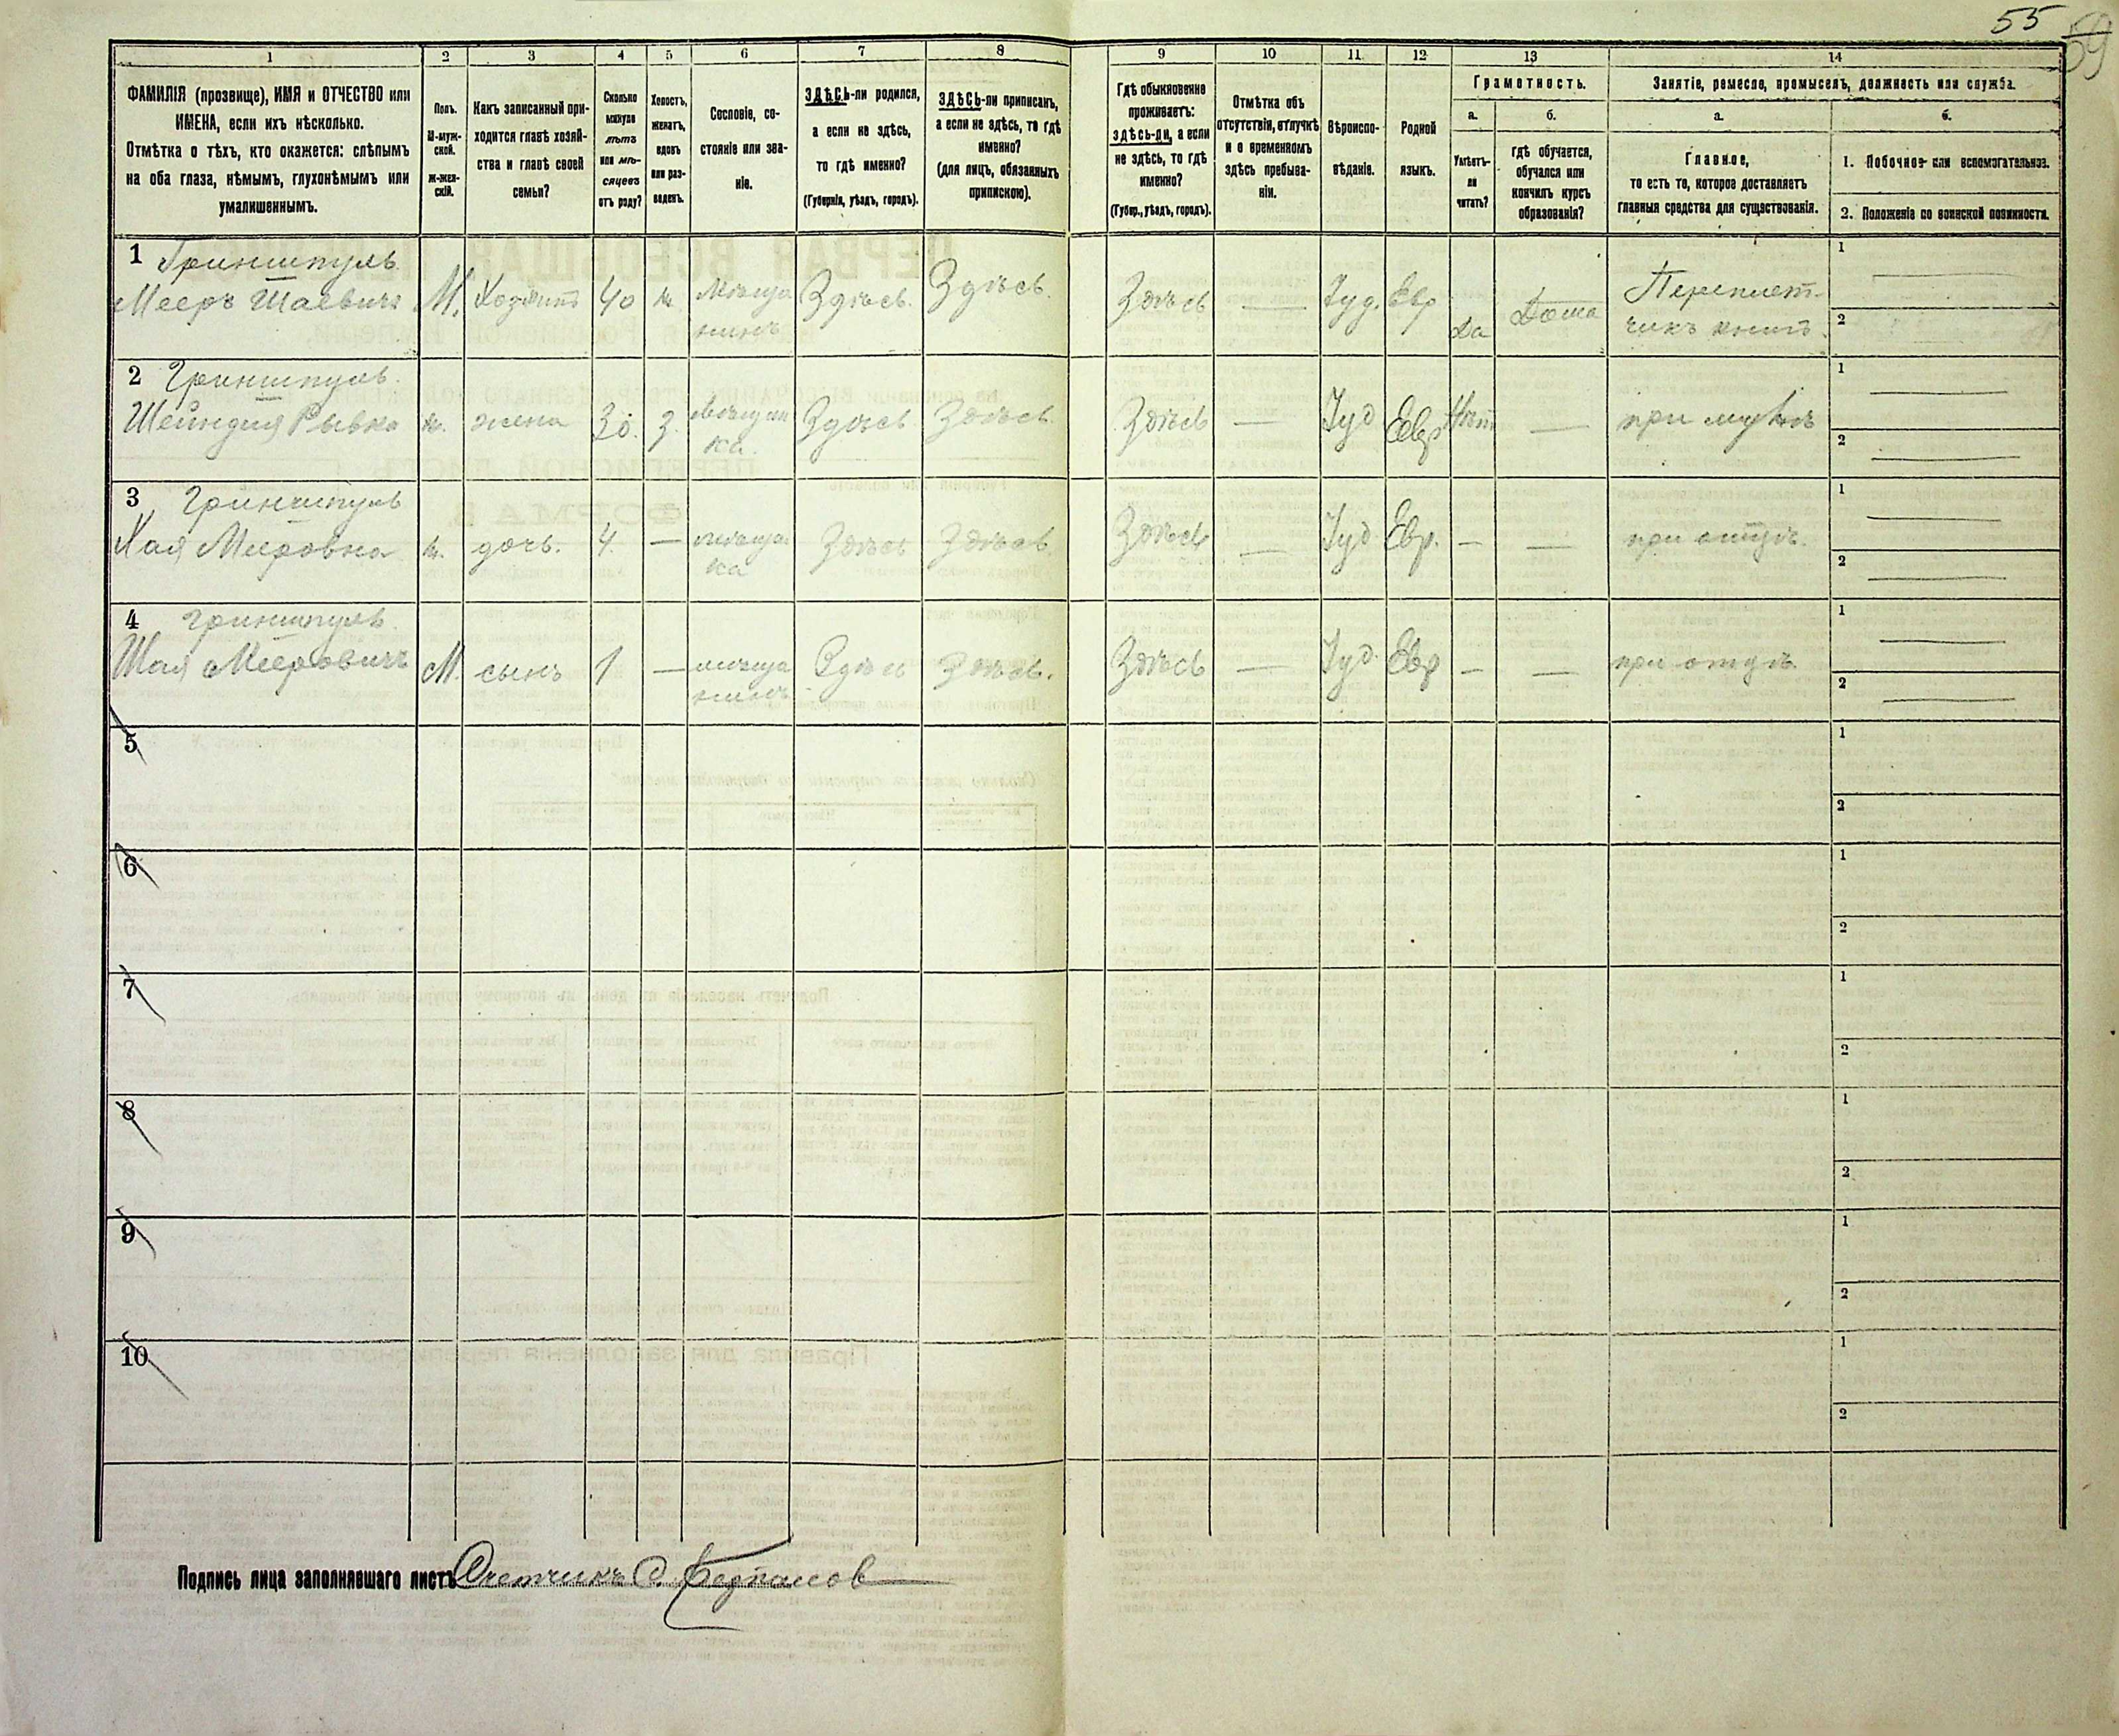 55
59
1
2
3
4
5
6
7
8
9
10
11
12
13
14
ФАМИЛІЯ (прозвище), ИМЯ и ОТЧЕСТВО или
ИМЕНА, если ихъ нѣсколько.
Отмѣтка о тѣхъ, кто окажется: слѣпымъ
на оба глаза, нѣмымъ, глухонѣмымъ или
умалишеннымъ.
Полъ.
М-муж-
ской.
Ж-жен-
скій.
Какъ записанный при-
ходится главѣ хозяй-
ства и главѣ своей
семьи?
Сколько
минуло
лѣтъ
или мѣ-
сяцевъ
отъ роду?
Холостъ,
женатъ,
вдовъ
или раз-
веденъ.
Сословіе, со-
стояніе или зва-
ніе.
ЗДѢСЬ-ли родился,
а если не здѣсь,
то гдѣ именно?
(Губернія, уѣздъ, городъ).
ЗДѢСЬ-ли приписанъ,
а если не здѣсь, то гдѣ
именно?
(для лицъ, обязанныхъ
припискою).
Гдѣ обыкновенно
проживаетъ:
ЗДѢСЬ-ЛИ, а если
не здѣсь, то гдѣ
именно?
(Губер., уѣздъ, городъ).
Отмѣтка объ
отсутствіи, отлучкѣ
и о временномъ
здѣсь пребыва-
ніи.
Вѣроиспо-
вѣданіе.
Родной
языкъ.
Грамотность.
а.
Умѣетъ-
ли
читать?
б.
Гдѣ обучается,
обучался или
кончилъ курсъ
образованія?
Занятіе, ремесло, промыселъ, должность или служба.
а.
Главное,
то есть то, которое доставляетъ
главныя средства для существованія.
б.
1. Побочное или вспомогательное.
2. Положеніе по воинской повинности.
1 Гриншпуль
Мееръ Шаевичъ М. Хозяинъ 40 ж. мѣща Здѣсь. Здѣсь. Здѣсь — Іуд. Евр Да Дома Переплет-
нинъ чикъ книгъ.
1
2
2 Гриншпуль.
Шейндля Рывка ж. жена 30. з. мѣщан Здѣсь Здѣсь Здѣсь — Іуд Евр Нѣт — при мужѣ
ка.
1
2
3 Гриншпуль
Хая Мееровна ж. дочь. 4. — мѣща Здѣсь Здѣсь Здѣсь — Іуд Евр. — — при отцѣ.
ка
1
2
4 Гриншпуль.
Шая Мееровичъ М. сынъ 1 — мѣща Здѣсь Здѣсь. Здѣсь — Іуд. Евр — — при отцѣ
нинъ
1
2
5
1
2
6
1
2
7
1
2
8
1
2
9
1
2
10
1
2
Подпись лица заполнявшаго листъ Счетчикъ С.